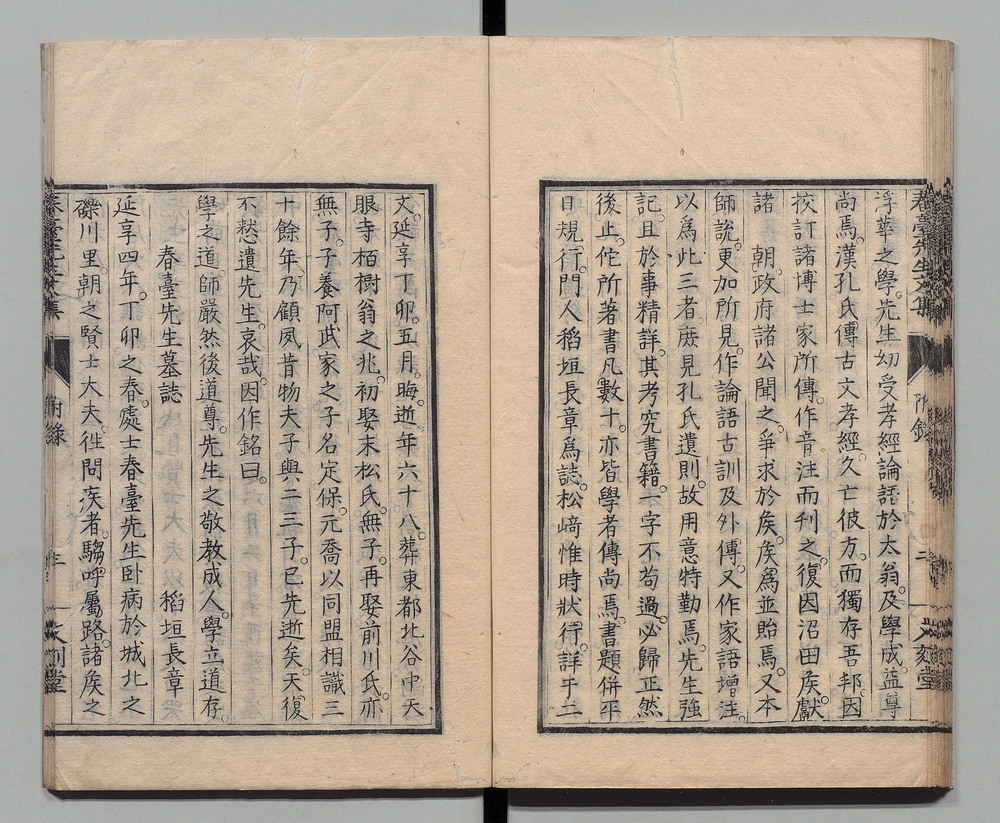 浮華之學先生幼受孝經論語於太翁及學成益尊
尚焉漢孔氏傳古文孝經久亡彼方而獨存吾邦因
挍訂諸博士家所傳作音注而刊之復因沼田矦獻
諸　朝政府諸公聞之爭求於矦矦爲並貽焉又本
師說更加所見作論語古訓及外傳又作家語增注
以爲此三者庻見孔氏遺則故用意特勤焉先生強
記且於事精詳其考究書籍一字不苟過必歸正然
後止佗所著書凡數十亦皆學者傳尚焉書題併平
日規行門人稻垣長章爲誌松﨑惟時狀行詳于二
文延享丁卯五月晦逝年六十八葬東都北谷中天
眼寺栢樹翁之兆初娶末松氏無子再娶前川氏亦
無子子養阿武家之子名定保元喬以同盟相識三
十餘年乃顧夙昔物夫子與二三子已先逝矣天復
不憖遺先生哀哉因作銘曰
學之道師嚴然後道尊先生之敬教成人學立道存
春臺先生墓誌　稻垣長章
延享四年丁卯之春處士春臺先生卧病於城北之
礫川里朝之賢士大夫徃問疾者騶呼屬路諸矦之
春臺先生文集
附錄
文刻堂